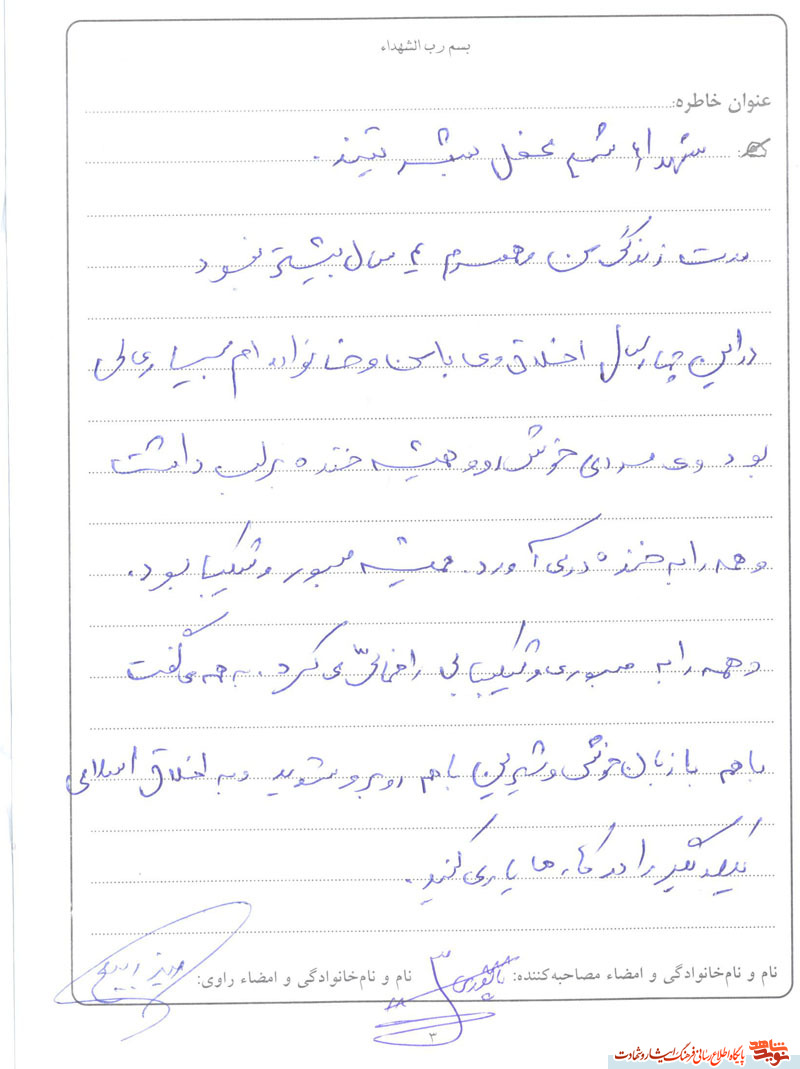 بسم رب الشهداء
عنوان خاطره:
شهداء شمع محفل بشریتند.
مدت زندگی من و همسرم ۴ سال بیشتر نبود
در این چهار سال اخلاق وی با من و خانواده ام بسیار عالی
بود وی مردی خوش رو و همیشه خنده بر لب داشت
و همه را به خنده در می آورد. همیشه صبور و شکیبا بود.
و همه را به صبوری و شکیبایی راهنمایی می کرد. به همه می گفت
باهم با زبان خوش و شیرین با هم روبرو شوید و به اخلاق اسلامی
یکدیگر را در کارها یاری کنید.
نام و نام‌خانوادگی و امضاء مصاحبه‌کننده: نام و نام‌خانوادگی و امضاء راوی:
۳
نوید شاهد پایگاه اطلاع رسانی فرهنگ ایثار و شهادت